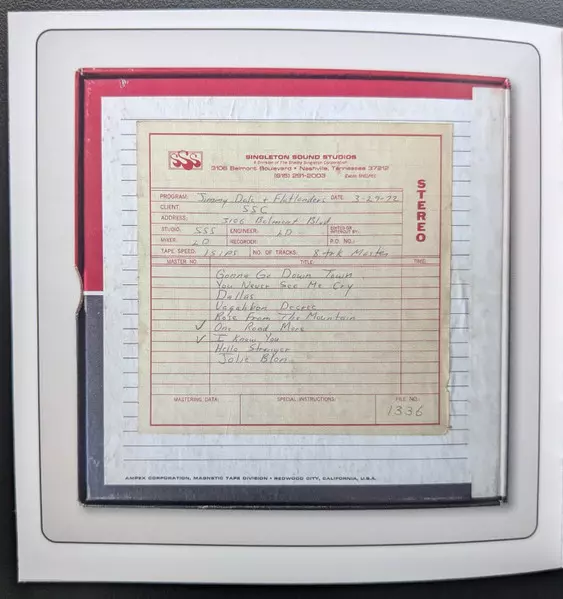 SSS
SINGLETON SOUND STUDIOS
A Division of The Shelby Singleton Corporation
3106 Belmont Boulevard • Nashville, Tennessee 37212
(615) 291-2003
STEREO
PROGRAM: Jimmy Dale & Flatlanders DATE: 3-29-72
CLIENT: SSC
ADDRESS: 3106 Belmont Blvd
STUDIO: SSS ENGINEER: LD EDITED OR
MIXED: LD RECORDER: P.O. NO.:
TAPE SPEED: 15 IPS NO. OF TRACKS: 8 trk Master
MASTER NO. TITLE TIME
Gonna Go Down Town
You Never See Me Cry
Dallas
Rose From The Mountain
✓ One Road More
✓ I Know You
Hello Stranger
Jolie Blon
MASTERING DATA: SPECIAL INSTRUCTIONS: FILE NO.:
1336
AMPEX CORPORATION, MAGNETIC TAPE DIVISION • REDWOOD CITY, CALIFORNIA, U.S.A.